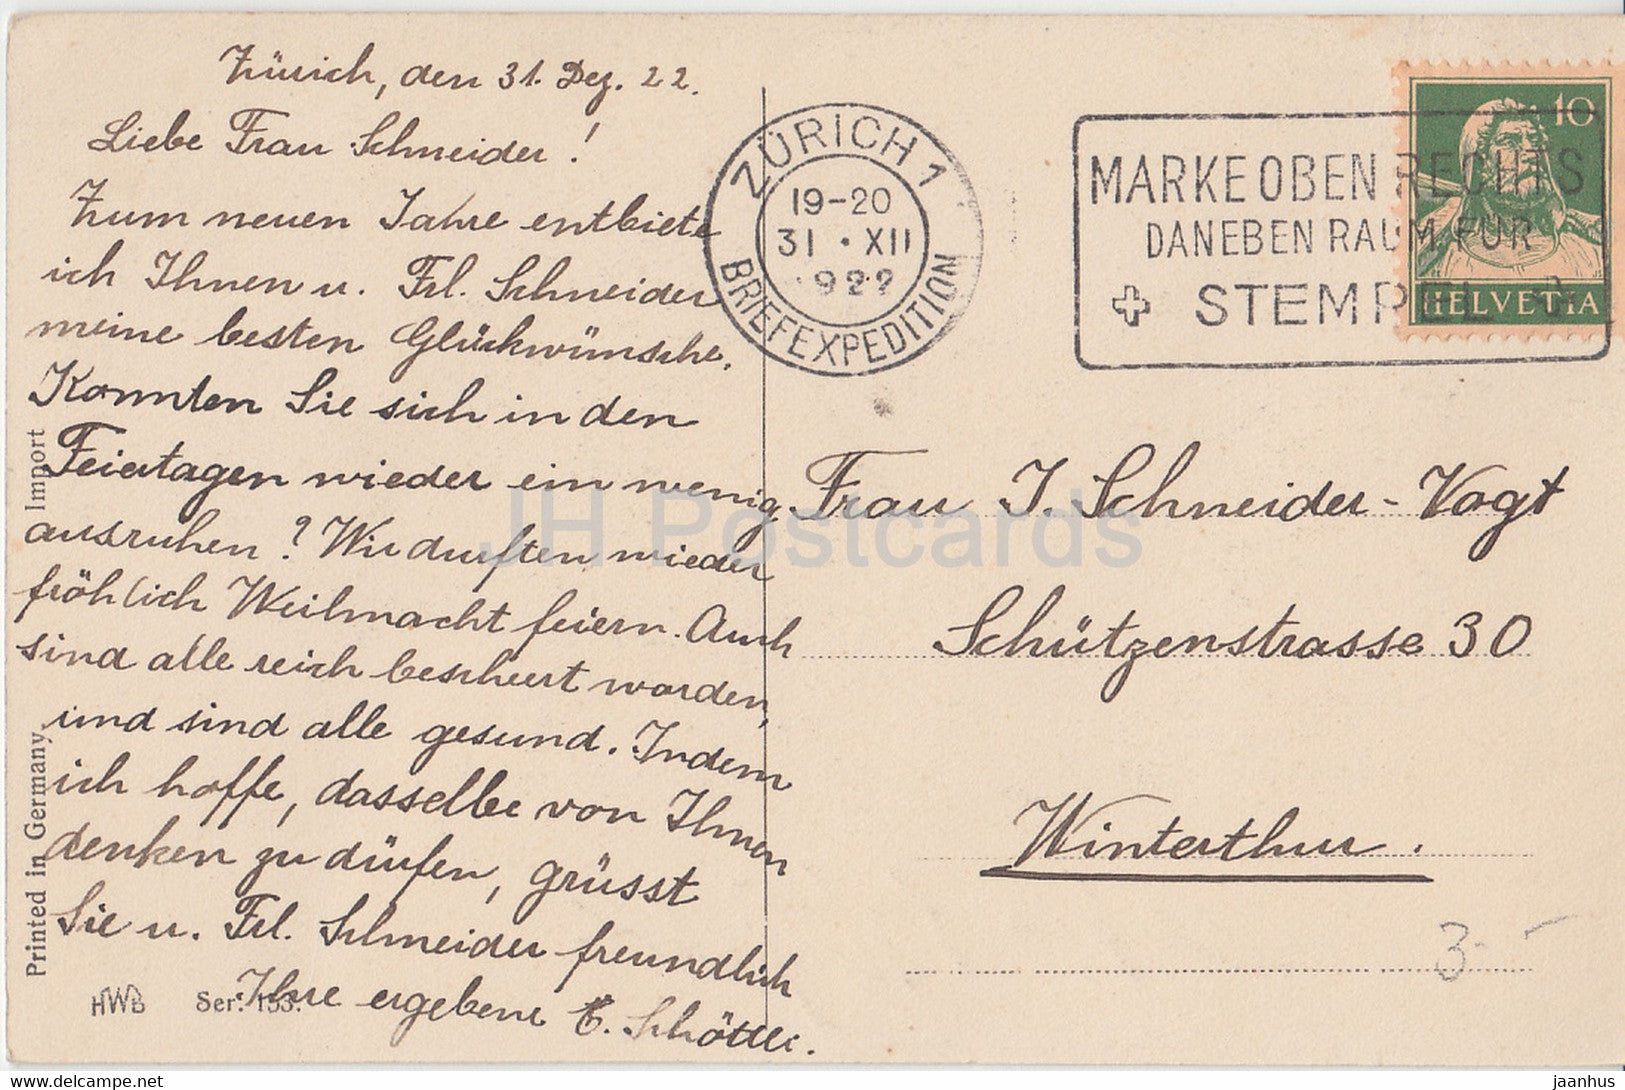 Zürich, den 31. Dez. 22.
Liebe Frau Schneider!
Zum neuen Jahre entbiete
ich Ihnen u. Frl. Schneider
meine besten Glückwünsche.
Konnten Sie sich in den
Feiertagen wieder ein wenig
ausruhen? Wir durften wieder
fröhlich Weihnacht feiern. Auch
sind alle reich beschert worden,
und sind alle gesund. Indem
ich hoffe, dasselbe von Ihnen
denken zu dürfen, grüsst
Sie u. Frl. Schneider freundlich
Ihre ergebene E.
ZÜRICH 1
19-20
31 · XII
1922
BRIEFEXPEDITION
MARKE OBEN RECHTS
DANEBEN RAUM FÜR
STEMPEL
10
HELVETIA
Frau J. Schneider-Vogt
Schützenstrasse 30
Winterthur.
3.-
Import
Printed in Germany
HWB Ser. 153.
JH Postcards
www.delcampe.net
jaanhus